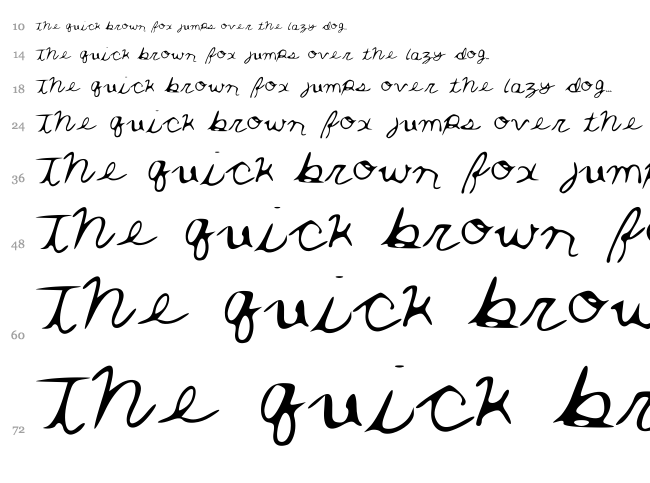 10 The quick brown fox jumps over the lazy dog.
14 The quick brown fox jumps over the lazy dog.
18 The quick brown fox jumps over the lazy dog.
24 The quick brown fox jumps over the
36 The quick brown fox jump
48 The quick brown fo
60 The quick brow
72 The quick br